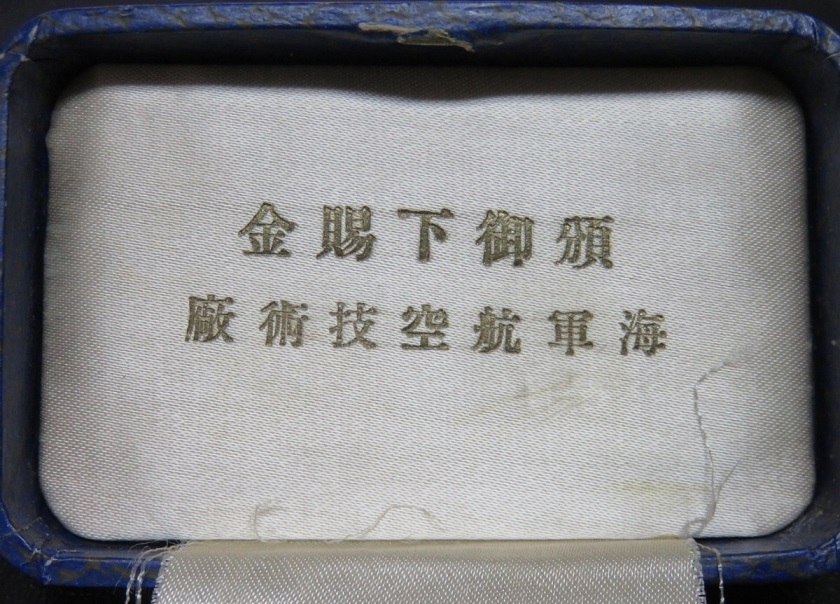 頒御下賜金
海軍航空技術廠